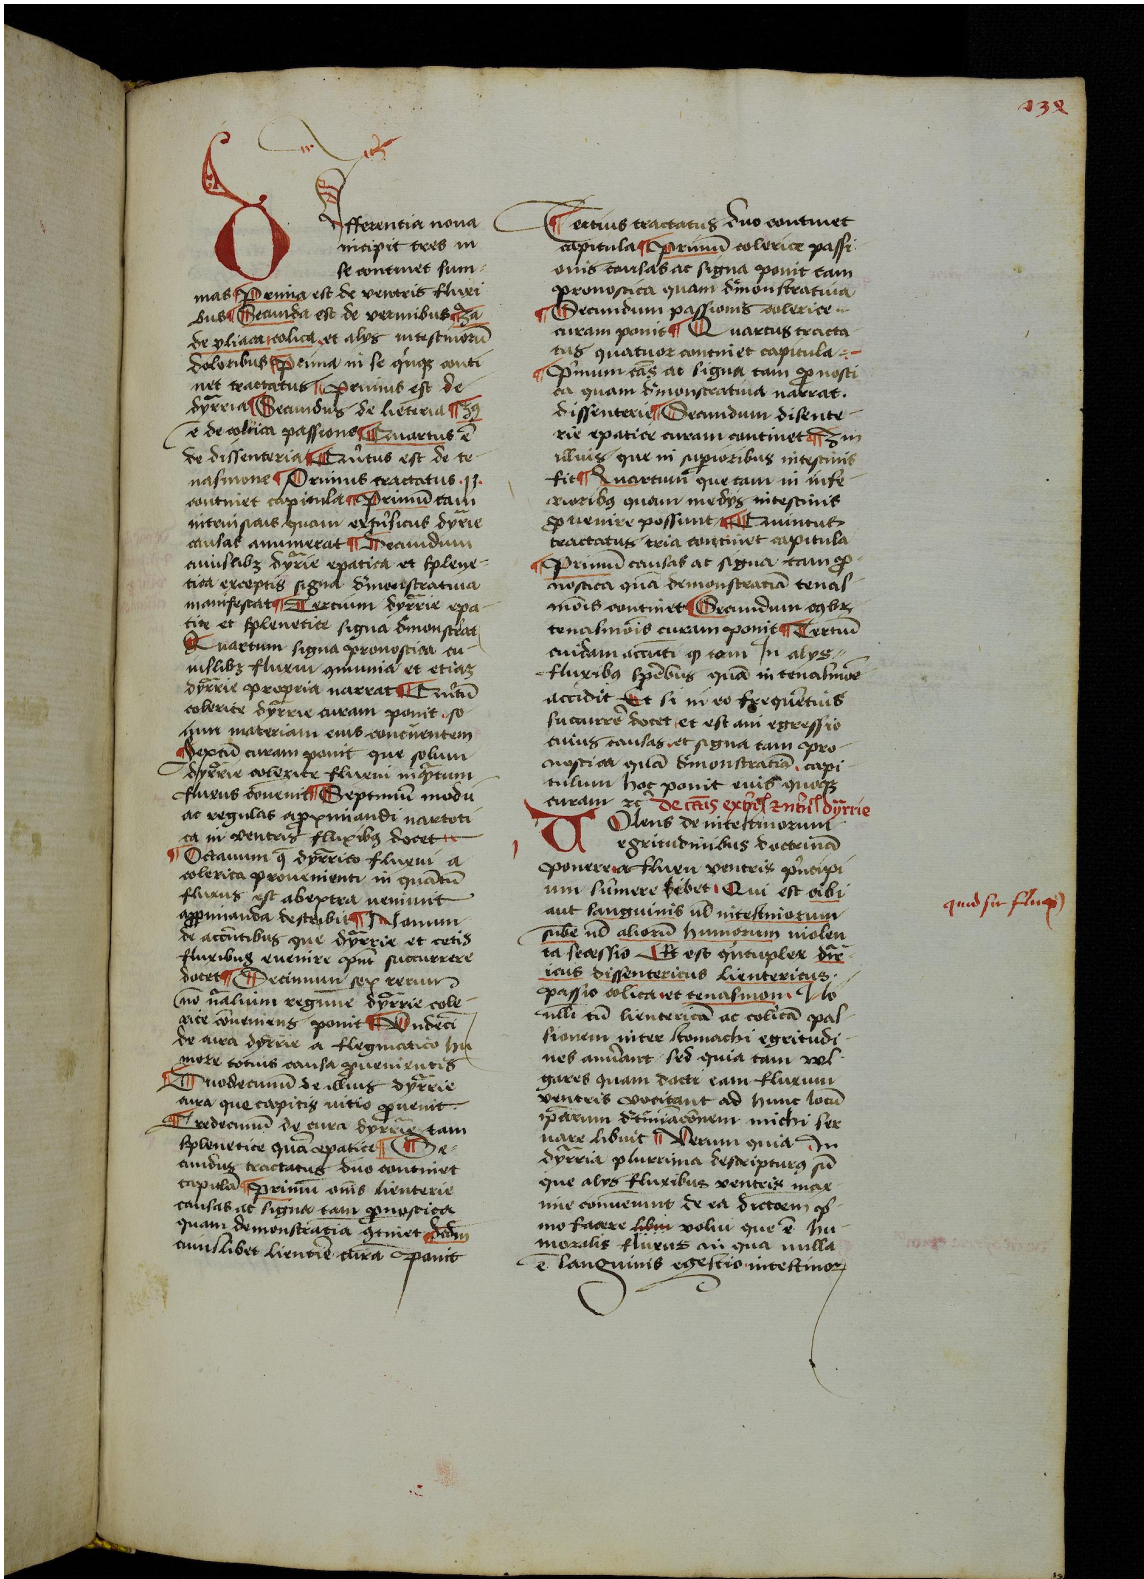 132
Differentia nona
incipit tres in
se continet sum-
mas ¶ Prima est de ventris fluxi
bus ¶ Secunda est de vermibus ¶ 3a
de yliaca colica et alys intestinorū
doloribus ¶ Prima in se q̄nqꝫ conti
net tractatus ¶ Primus est de
dyarria ¶ Secundus de lienteria ¶ 3ꝯ
ē de colica passione ¶ Quartus ē
de dissenteria ¶ Quītus est de te-
nasmone ¶ Primus tractatus .13.
continet capitula ¶ Primū tam
intrinsicas quam extrīsicas dyarrie
causas anumerat ¶ Secundum
cuiuslibꝫ dyarrie epatica et splene-
tica exceptis signa dmonstratiua
manifestat ¶ Tercium dyarrie epa-
tice et splenetice signa dmonstrat
Quartum signa pronostica cu-
iuslibꝫ fluxui ꝯmunia et etiaꝫ
dyarrie propria narrat ¶ Quītū
colerice dyarrie curam ponit so
lum materiam eius concernentem
¶ Sextū curam ponit que solum
dyarrie colerice fluxui inqꝫtum
fluxus conuenit ¶ Septimū modū
ac regulas apꝓximandi narcoti
ca in ventris fluxibꝫ docet
¶ Octauum q̄ dyarrico fluxui a
colerica prouenienti in quātū
fluxus est ab extra ueniunt
approximanda describit ¶ Nonum
de accntibus que dyarrie et cetis
fluxibus euenire pnt succurrere
docet ¶ Decimum sex rerum
nō nālium regimē dyarrie cole-
rice ꝯueniens ponit ¶ Undeci
de cura dyarrie a flegmatico hu
more totius causa ꝓuenientis
¶ Duodecimū de illius dyarrie
cura que capitis uitio ꝓuenit
¶ Tredecimū de cura dyarrie tam
splenetice quā epatice ¶ Se-
cundus tractatus duo continet
capitula ¶ Primū oīs lienterie
causas ac signa tam ꝓnostica
quam demonstratiua ꝯtinet ¶ Scdm
cuiuslibet lienterie curā ponit
¶ Tercius tractatus duo continet
capitula ¶ Primū colerice passi
onis causas ac signa ponit tam
pronostica quam dmonstratiua
¶ Secundum passionis colerice
curam ponit ¶ Quartus tracta
tus quatuor continet capitula
¶ Primum cās ac signa tam ꝓnosti
ca quam dmonstratiua narrat
dissenterie ¶ Secundum disente-
rie epatice curam continet ¶ 3m
illius que in superioribus intestinis
fit ¶ Quartum que tam in infe
rioribꝫ quam medys intestinis
ꝓuenire possunt ¶ Quintus
tractatus tria continet capitula
¶ Primū causas ac signa tam ꝓ-
nostica quā demonstratiā tenas-
mōis continet ¶ Secundum
tenasmōis curam ponit ¶ Tertiū
cuidam accnti qꝫ tam in alys
fluxibꝫ spēbus quā in tenasmōe
accidit Et si in eo frequētius
succurrē docet et est ani egressio
cuius causas et signa tam pro-
nostica quā dmonstratiā capi-
tulum hoc ponit eius quoqꝫ
curam ꝛc̄ de cāis extrīs ꝛ intrīs dyarrie
Volens de intestinorum
egritudinibus doctrinā
ponere a fluxu ventris pncipi
um sumere debet Qui est cibi
aut sanguinis uel intestinorum
sube uel aliorū humorum uiolen
ta secessio Et est quītuplex diar
icus dissentericus lientericus
passio colica et tenasmon No
nulli tn̄ lientericā ac colicā pas-
sionem inter stomachi egritudi-
nes anumerant sed quia tam vul-
gares quam doctr eam fluxum
ventris vocitant ad hunc locū
ipārum dtmīacōnem michi ser
uare libuit ¶ Verum quia in
dyarria plurima descripturus sū
que alys fluxibus ventris max
ime conueniunt de ea dictōem pri
mo facere libui volui que ē hu-
moralis fluxus in qua nulla
ē sanguinis egestio intestinorꝫ
quid sit fluxꝯ